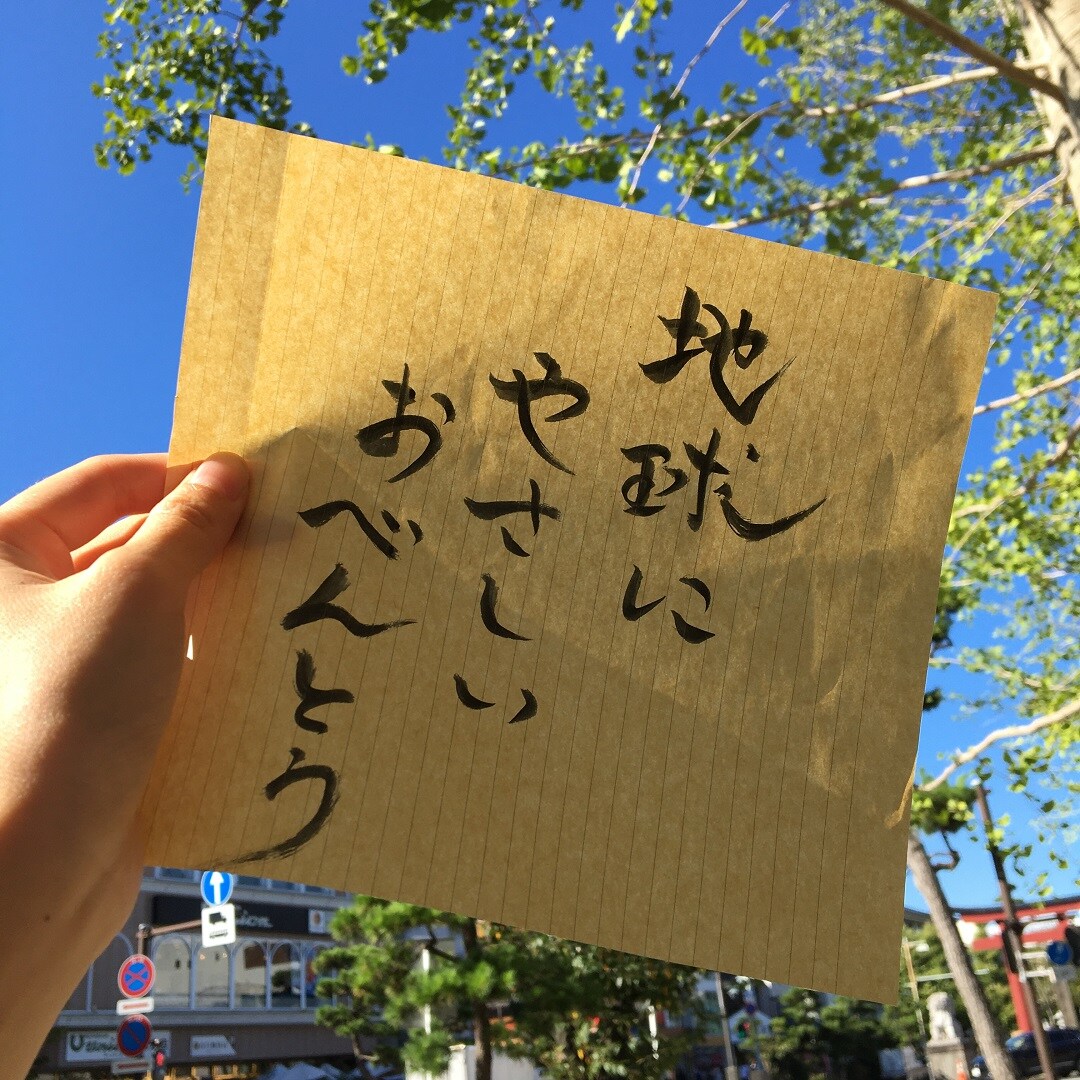 地球に
やさしい
おべんとう